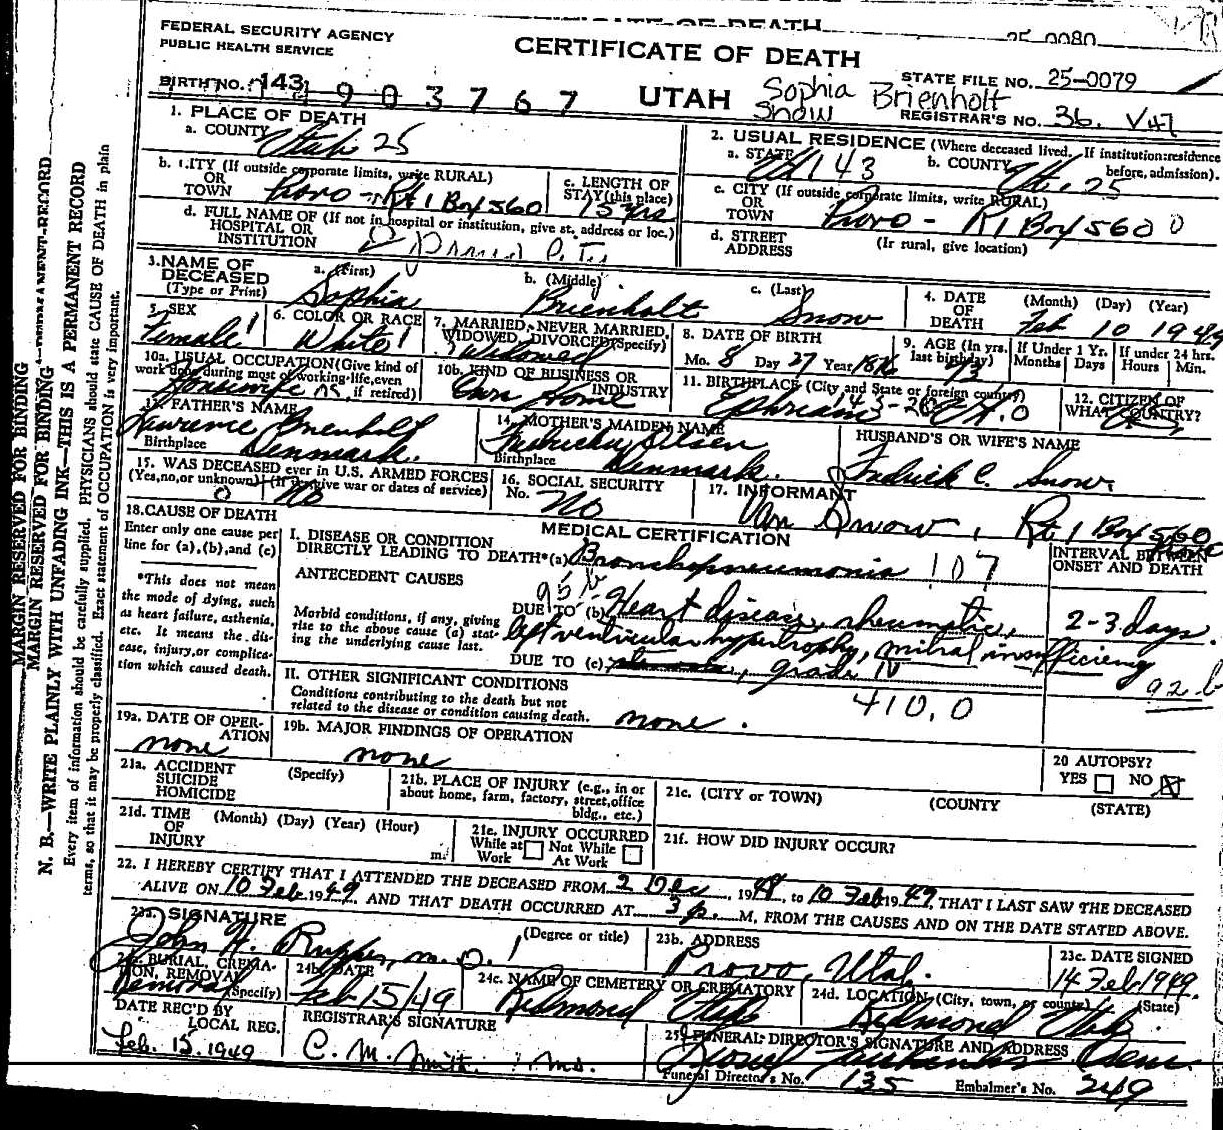 CERTIFICATE OF DEATH
25-0080
FEDERAL SECURITY AGENCY
PUBLIC HEALTH SERVICE
CERTIFICATE OF DEATH
STATE FILE NO. 25-0079
BIRTH NO. 143
903767
UTAH
Sophia Brienholt
Snow
REGISTRAR'S NO. 36. V47
1. PLACE OF DEATH
a. COUNTY Utah 25
2. USUAL RESIDENCE (Where deceased lived. If institution: residence before, admission).
a. STATE Ut 143 b. COUNTY Ut. 25
b. CITY (If outside corporate limits, write RURAL)
OR
TOWN Provo - Rt 1 Box 560
c. LENGTH OF
STAY (this place) 15 yrs
c. CITY (If outside corporate limits, write RURAL)
OR
TOWN Provo - R1 Box 560 0
d. FULL NAME OF (If not in hospital or institution, give st. address or loc.)
HOSPITAL OR
INSTITUTION
d. STREET
ADDRESS
(If rural, give location)
3. NAME OF
DECEASED
(Type or Print)
a. (First) Sophia
b. (Middle) Brienholt
c. (Last) Snow
4. DATE
OF
DEATH
(Month) (Day) (Year)
Feb 10 1949
5. SEX
Female
6. COLOR OR RACE
White
7. MARRIED, NEVER MARRIED,
WIDOWED, DIVORCED (Specify)
Widowed
8. DATE OF BIRTH
Mo. 8 Day 27 Year 1876
9. AGE (In yrs.
last birthday)
If Under 1 Yr.
Months Days
If under 24 hrs.
Hours Min.
10a. USUAL OCCUPATION (Give kind of
work done during most of working life, even
if retired)
Housewife
10b. KIND OF BUSINESS OR
INDUSTRY
Own Home
11. BIRTHPLACE (City and State or foreign country)
Ephriam 43-20 Ut. 0
12. CITIZEN OF
WHAT COUNTRY?
13. FATHER'S NAME
Lawrence Brienholt
Birthplace Denmark.
14. MOTHER'S MAIDEN NAME
Olsen
Birthplace Denmark.
HUSBAND'S OR WIFE'S NAME
Fredrick C. Snow
15. WAS DECEASED ever in U.S. ARMED FORCES
(Yes, no, or unknown) (If so, give war or dates of service)
0 No
16. SOCIAL SECURITY
No. No
17. INFORMANT
Van Snow, Rt. 1 Box 560
18. CAUSE OF DEATH
Enter only one cause per
line for (a), (b), and (c)
*This does not mean
the mode of dying, such
as heart failure, asthenia,
etc. It means the disease, injury, or complication which caused death.
MEDICAL CERTIFICATION
INTERVAL BETWEEN
ONSET AND DEATH
I. DISEASE OR CONDITION
DIRECTLY LEADING TO DEATH* (a) Bronchopneumonia 107
ANTECEDENT CAUSES
95 b
Morbid conditions, if any, giving
rise to the above cause (a) stating the underlying cause last.
DUE TO (b) Heart disease, rheumatic,
2-3 days.
left ventricular hypertrophy, mitral insufficiency
DUE TO (c) , grade IV
92 b
II. OTHER SIGNIFICANT CONDITIONS
Conditions contributing to the death but not
related to the disease or condition causing death. none.
410.0
19a. DATE OF OPERATION
none
19b. MAJOR FINDINGS OF OPERATION
none
20 AUTOPSY?
YES NO
21a. ACCIDENT
SUICIDE
HOMICIDE
(Specify)
21b. PLACE OF INJURY (e.g., in or
about home, farm, factory, street, office
bldg., etc.)
21c. (CITY or TOWN) (COUNTY (STATE)
21d. TIME
OF
INJURY
(Month) (Day) (Year) (Hour)
m.
21e. INJURY OCCURRED
While at
Work
Not While
At Work
21f. HOW DID INJURY OCCUR?
22. I HEREBY CERTIFY THAT I ATTENDED THE DECEASED FROM 2 Dec, 1948, to 10 Feb 1949 THAT I LAST SAW THE DECEASED
ALIVE ON 10 Feb 1949 AND THAT DEATH OCCURRED AT 3 p. M, FROM THE CAUSES AND ON THE DATE STATED ABOVE.
23a. SIGNATURE
John H. Rupper, M.D.
(Degree or title)
23b. ADDRESS
Provo, Utah.
23c. DATE SIGNED
14 Feb 1949.
24a. BURIAL, CREMATION, REMOVAL
(Specify)
Removal
24b. DATE
Feb 15/49
24c. NAME OF CEMETERY OR CREMATORY
Redmond Utah
24d. LOCATION (City, town, or county) (State)
Redmond Utah.
DATE REC'D BY
LOCAL REG.
Feb. 15, 1949
REGISTRAR'S SIGNATURE
C. M. Smith. Md.
25. FUNERAL DIRECTOR'S SIGNATURE AND ADDRESS
Funeral Director's No. 135 Embalmer's No. 249
MARGIN RESERVED FOR BINDING
MARGIN RESERVED FOR BINDING
N. B.—WRITE PLAINLY WITH UNFADING INK—THIS IS A PERMANENT RECORD
Every item of information should be carefully supplied. PHYSICIANS should state CAUSE OF DEATH in plain
terms, so that it may be properly classified. Exact statement of OCCUPATION is very important.